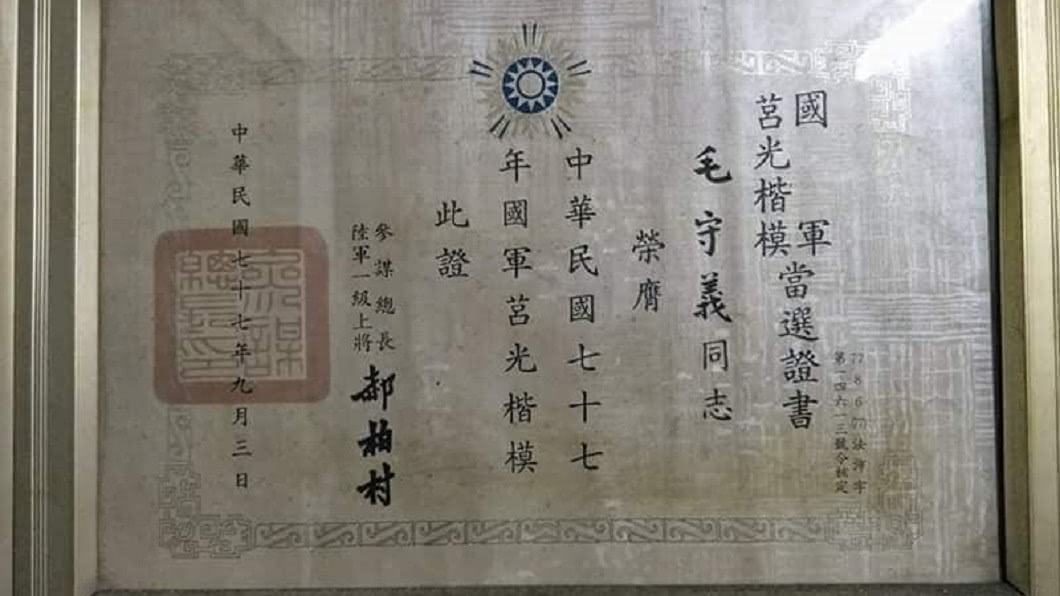 國軍
莒光楷模
當選證書
77 8 6
號令核定
毛守義同志
榮膺
中華民國七十七
年國軍莒光楷模
此證
參謀總長
陸軍一級上將
郝柏村
中華民國七十七年九月三日